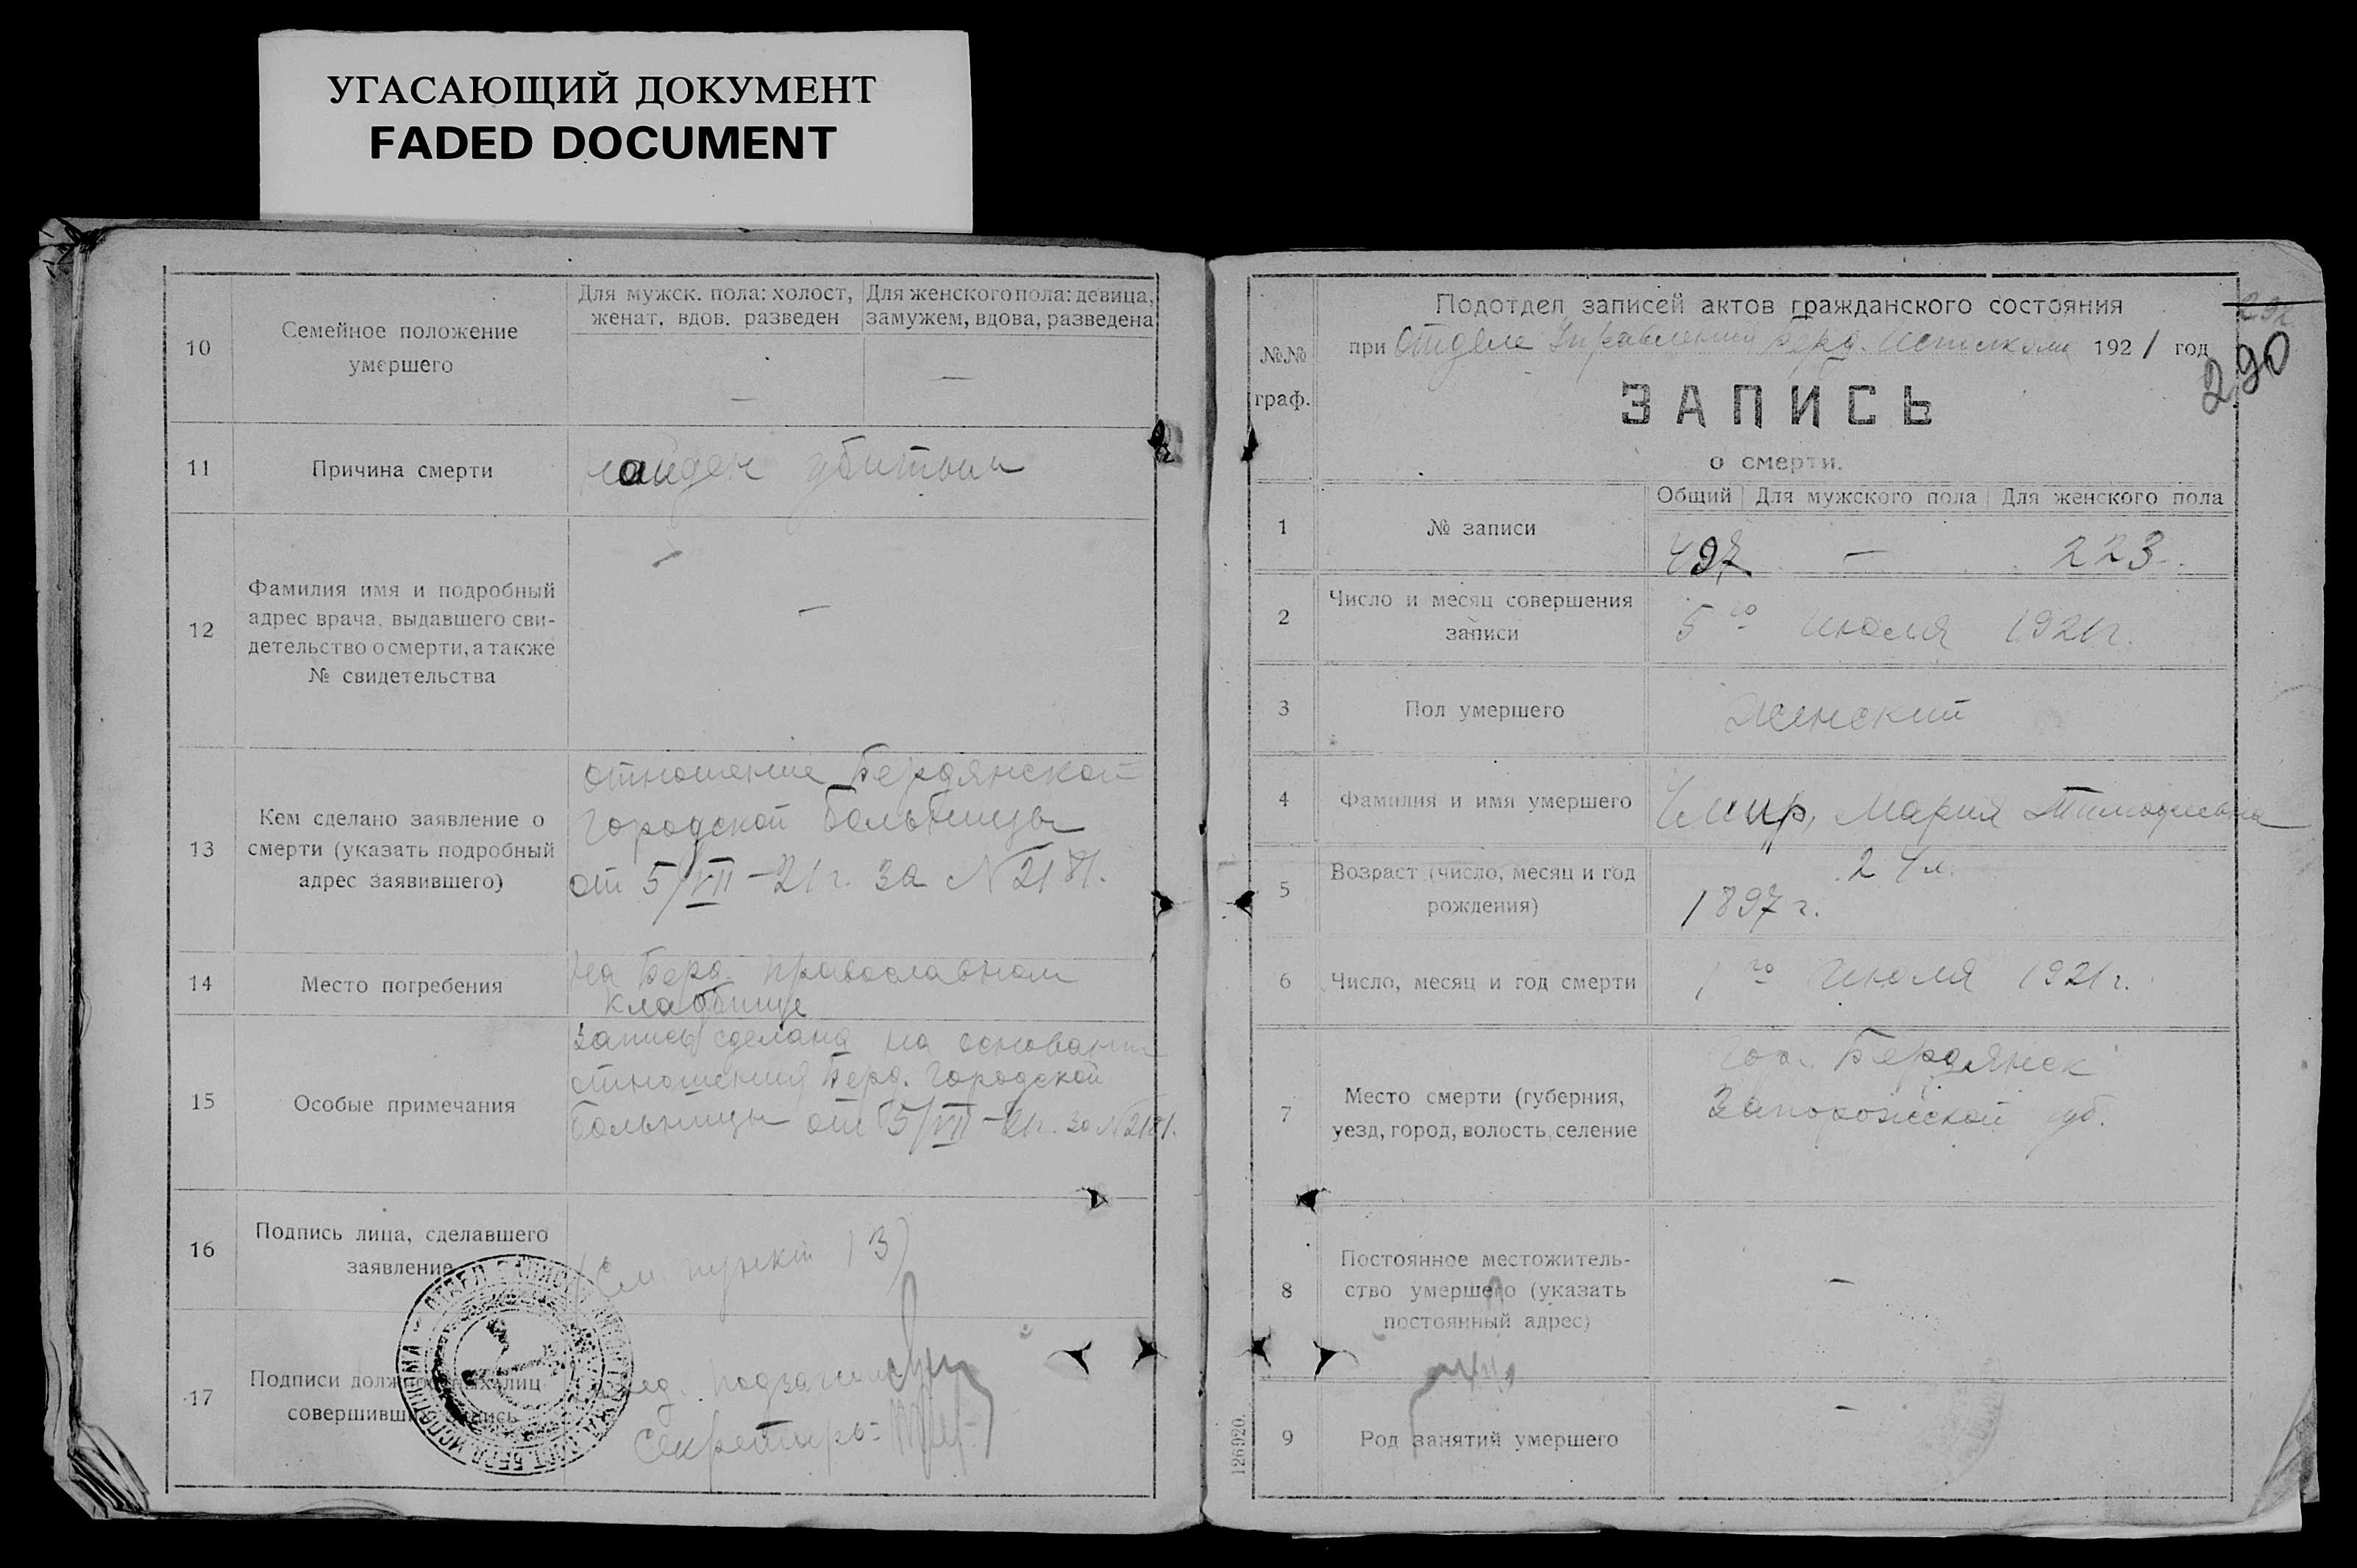 УГАСАЮЩИЙ ДОКУМЕНТ
FADED DOCUMENT
10
Семейное положение
умершего
Для мужск. пола: холост,
женат, вдов, разведен
—
Для женского пола: девица,
замужем, вдова, разведена
—
11
Причина смерти
найден убитым
12
Фамилия имя и подробный
адрес врача, выдавшего сви-
детельство о смерти, а также
№ свидетельства
—
13
Кем сделано заявление о
смерти (указать подробный
адрес заявившего)
отношение Бердянской
городской больницы
от 5/VII–21 г. за № 2181.
14
Место погребения
на Берд. православном
кладбище
15
Особые примечания
Запись сделана на основании
отношения Берд. городской
больницы от 5/VII–21 г. за № 2181.
16
Подпись лица, сделавшего
заявление
(См. пункт 13)
17
Подписи должностных лиц
совершивших запись
Секретарь-
№№
граф.
Подотдел записей актов гражданского состояния
при Отделе Управления Берд. Исполкома 1921 год
290
ЗАПИСЬ
о смерти.
1
№ записи
Общий
Для мужского пола
Для женского пола
497
—
223
2
Число и месяц совершения
записи
5го Июля 1921 г.
3
Пол умершего
Женский
4
Фамилия и имя умершего
Мария Тимофеевна
5
Возраст (число, месяц и год
рождения)
24 л.
1897 г.
6
Число, месяц и год смерти
1го Июля 1921 г.
7
Место смерти (губерния,
уезд, город, волость, селение
гор. Бердянск
Запорожской губ.
8
Постоянное местожитель-
ство умершего (указать
постоянный адрес)
—
9
Род занятий умершего
—
126920.